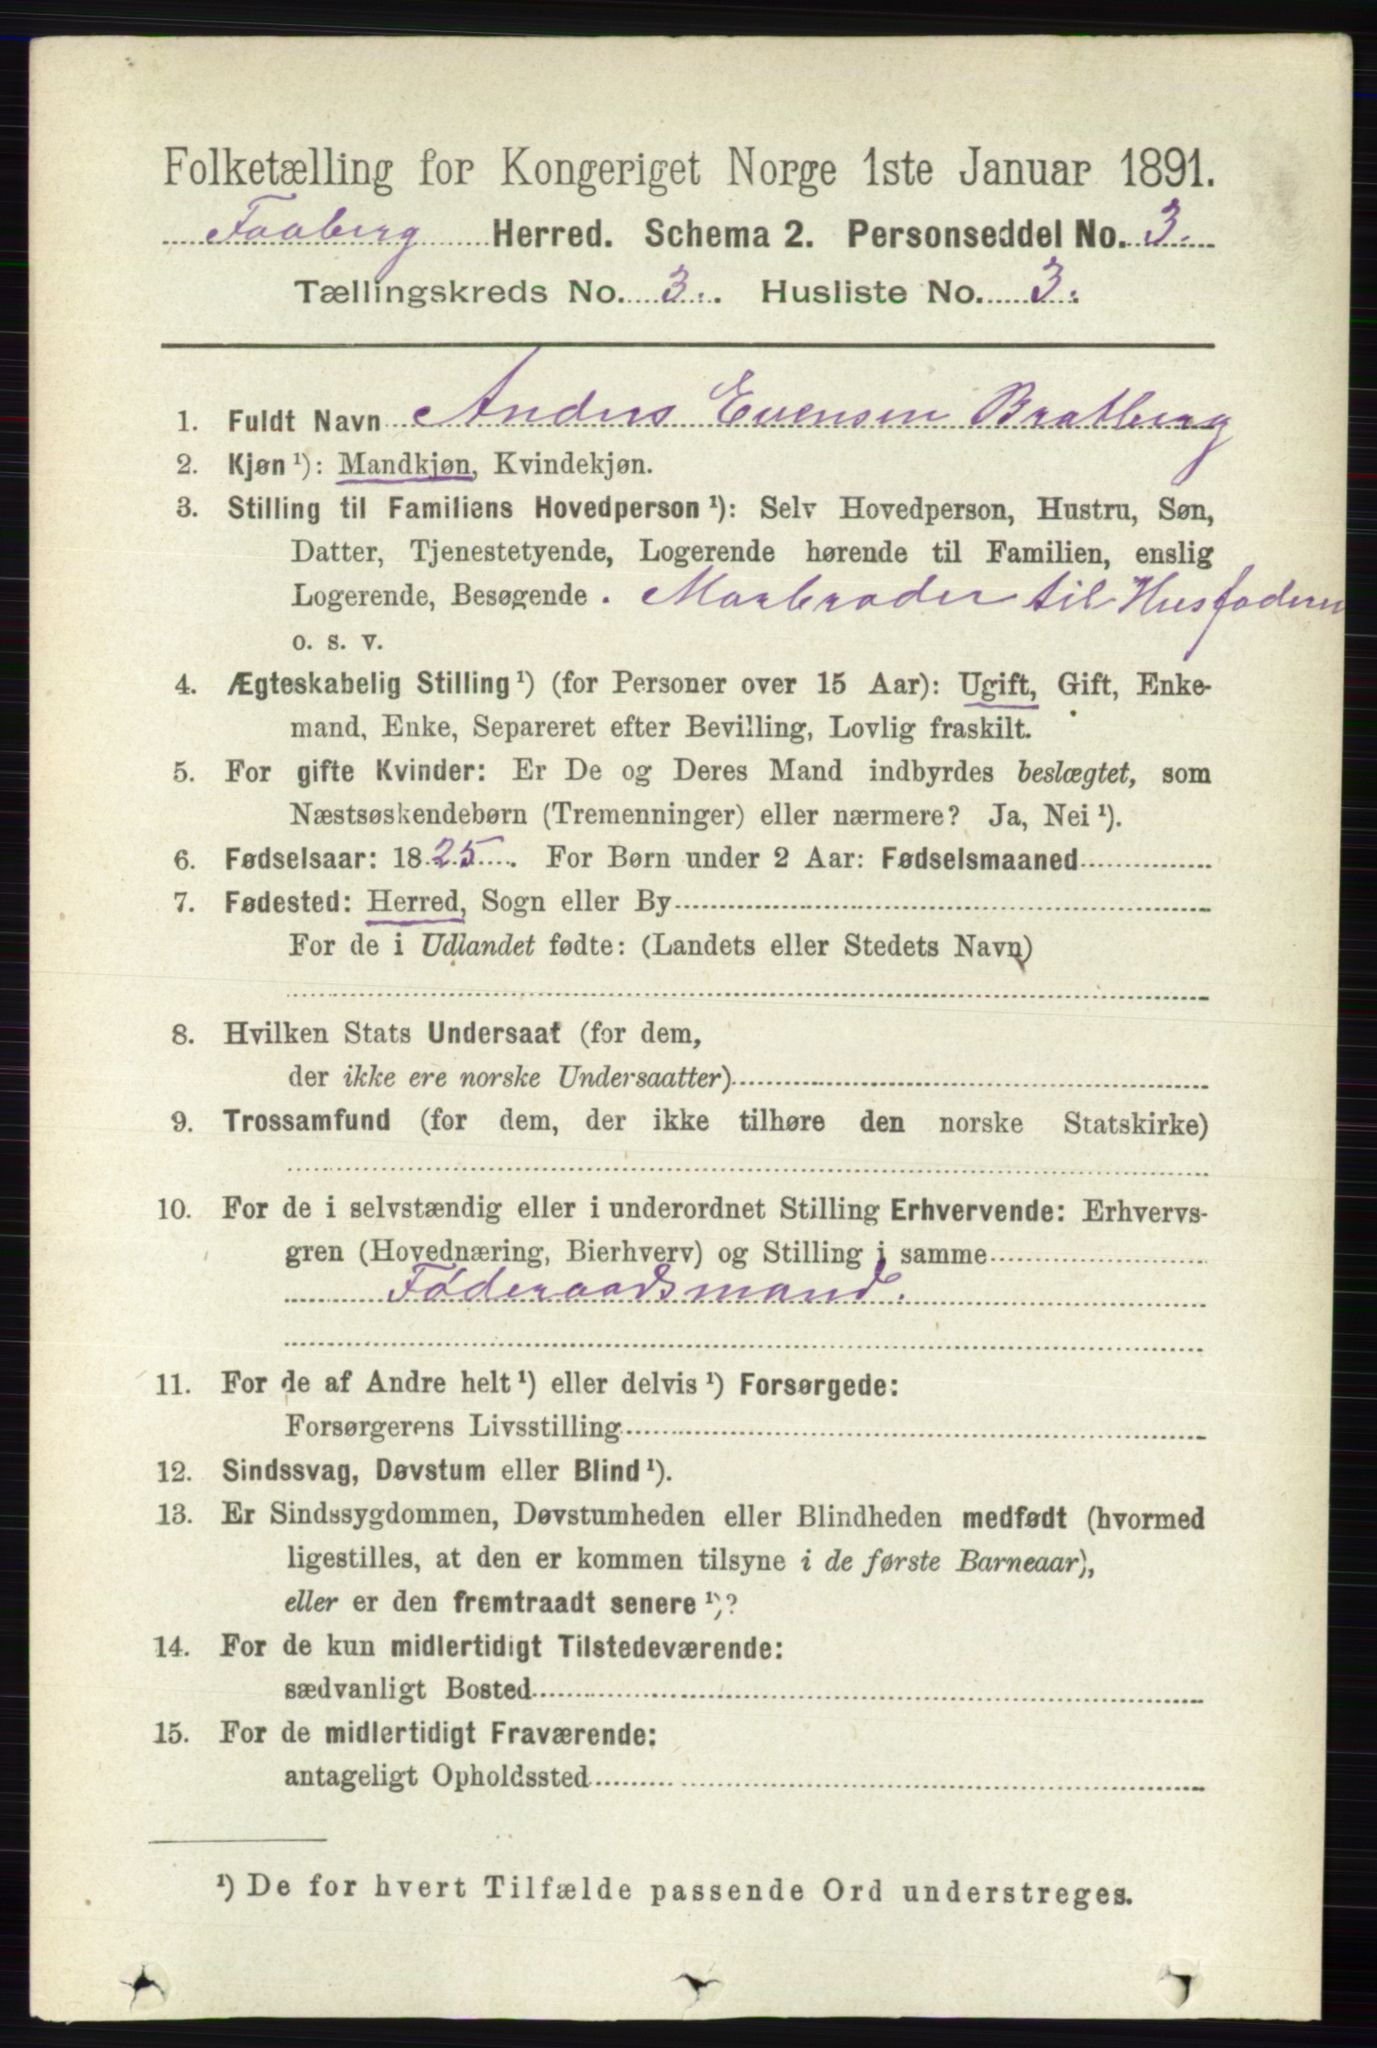 Folketælling for Kongeriget Norge 1ste Januar 1891.
Faaberg Herred. Schema 2. Personseddel No. 3.
Tællingskreds No. 3. Husliste No. 3.
1. Fuldt Navn Anders Evensen Bratberg
2. Kjøn¹): Mandkjøn, Kvindekjøn.
3. Stilling til Familiens Hovedperson¹): Selv Hovedperson, Hustru, Søn,
Datter, Tjenestetyende, Logerende hørende til Familien, enslig
Logerende, Besøgende. Morbroder til Husfaderen
o. s. v.
4. Ægteskabelig Stilling¹) (for Personer over 15 Aar): Ugift, Gift, Enke-
mand, Enke, Separeret efter Bevilling, Lovlig fraskilt.
5. For gifte Kvinder: Er De og Deres Mand indbyrdes beslægtet, som
Næstsøskendebørn (Tremenninger) eller nærmere? Ja, Nei¹).
6. Fødselsaar: 1825. For Børn under 2 Aar: Fødselsmaaned
7. Fødested: Herred, Sogn eller By
For de i Udlandet fødte: (Landets eller Stedets Navn)
8. Hvilken Stats Undersaat (for dem,
der ikke ere norske Undersaatter)
9. Trossamfund (for dem, der ikke tilhøre den norske Statskirke)
10. For de i selvstændig eller i underordnet Stilling Erhvervende: Erhvervs-
gren (Hovednæring, Bierhverv) og Stilling i samme
Føderaadsmand.
11. For de af Andre helt¹) eller delvis¹) Forsørgede:
Forsørgerens Livsstilling
12. Sindssvag, Døvstum eller Blind¹).
13. Er Sindssygdommen, Døvstumheden eller Blindheden medfødt (hvormed
ligestilles, at den er kommen tilsyne i de første Barneaar),
eller er den fremtraadt senere¹)?
14. For de kun midlertidigt Tilstedeværende:
sædvanligt Bosted
15. For de midlertidigt Fraværende:
antageligt Opholdssted
¹) De for hvert Tilfælde passende Ord understreges.